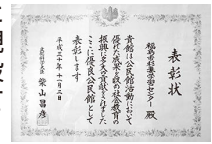 表彰状
福島市杉妻学習センター 殿
貴館は公民館活動において
優れた成果を収め社会教育の
振興に多大の貢献をされました
ここに優良公民館として
表彰します
平成三十年十一月二日
文部科学大臣 柴山昌彦